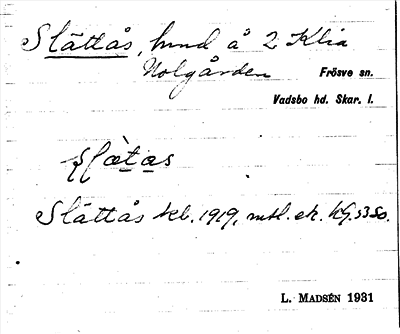 Slättås, hmd å 2 Klia
Nolgården Frösve sn.
Vadsbo hd. Skar. l.
Slättås kbl. 1919, mtl. ek.
L. MADSÉN 1931